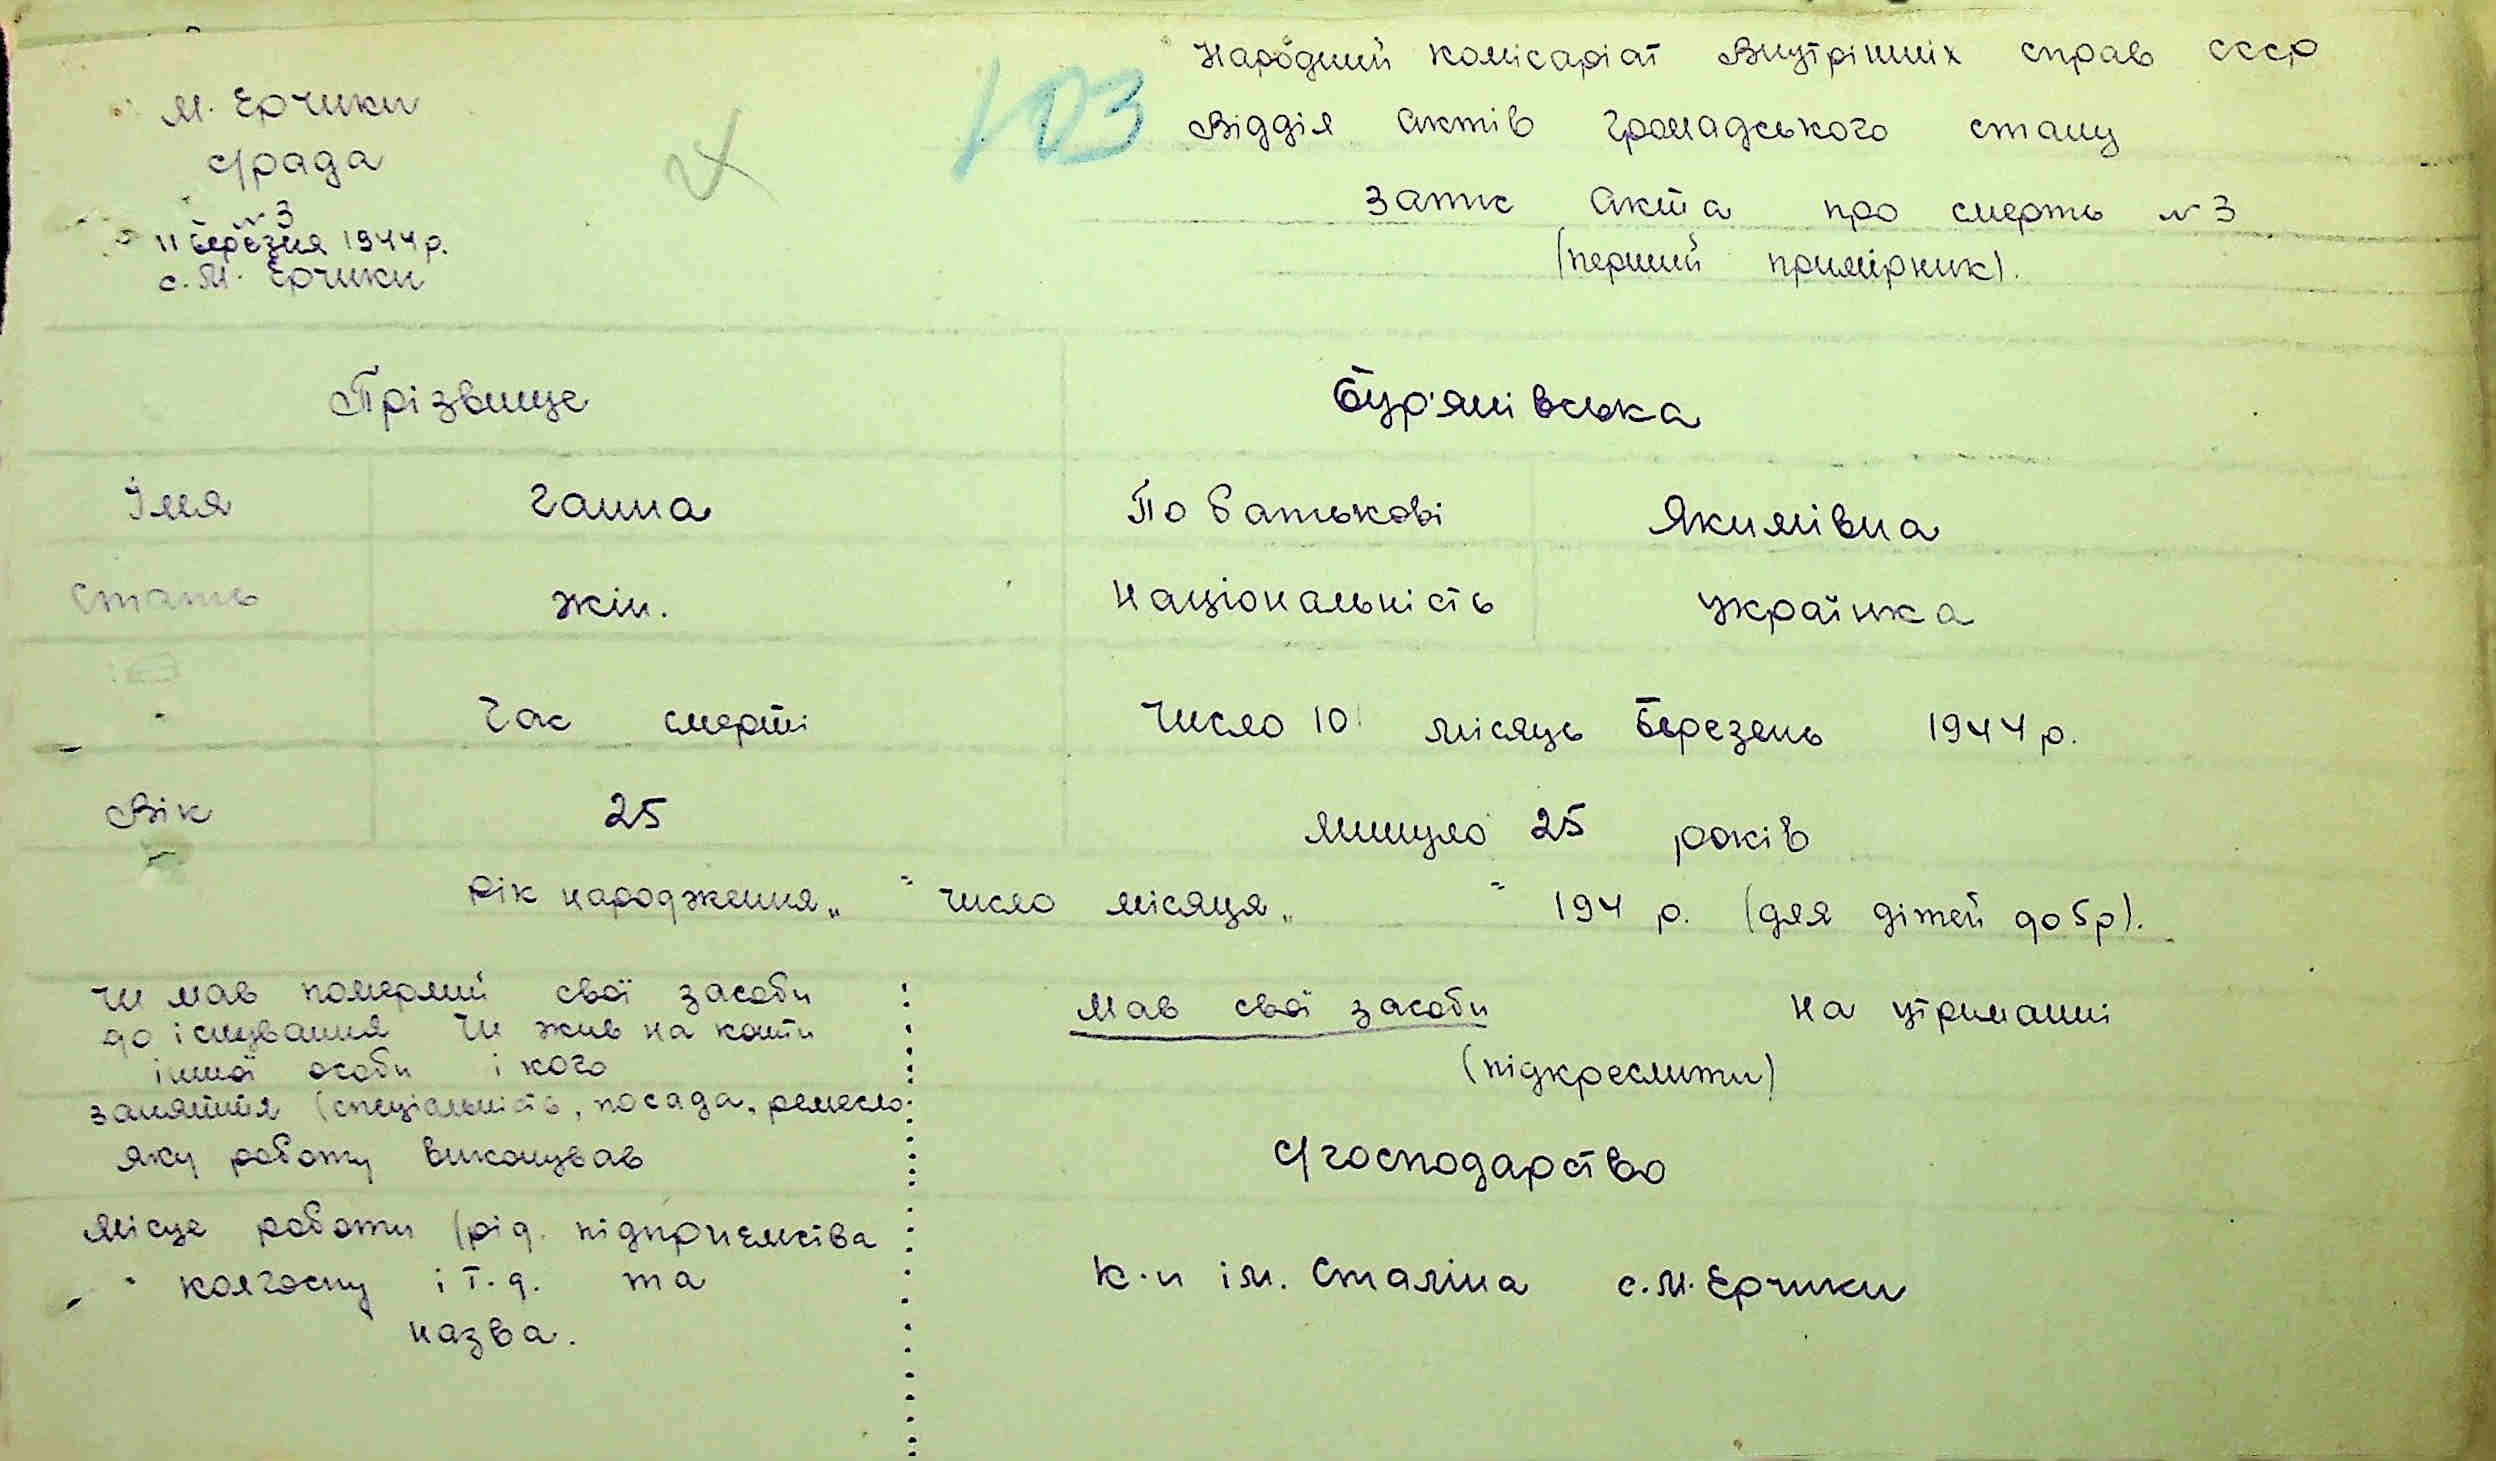 Народний комісаріат Внутрішніх справ СССР
103
Відділ актів громадського стану
Запис акта про смерть № 3
(перший примірник).
М. Ерчики
с/рада
№ 3
11 березня 1944 р.
с. М. Ерчики
Прізвище Бур'янівська
Імя Ганна По батькові Якимівна
Стать жін. Національність українка
Час смерті Число 10 місяць Березень 1944 р.
Вік 25 минуло 25 років
Рік народження „ " число місяця „ " 194 р. (для дітей до 5 р).
Чи мав померлий свої засоби
до існування чи жив на кошти
іншої особи і кого
Мав свої засоби На утриманні
(підкреслити)
заняття (спеціальність, посада, ремесло
яку роботу виконував
с/господарство
Місце роботи (рід. підприємства
колгоспу і т.д. та
назва.
К-п ім. Сталіна с. М. Ерчики